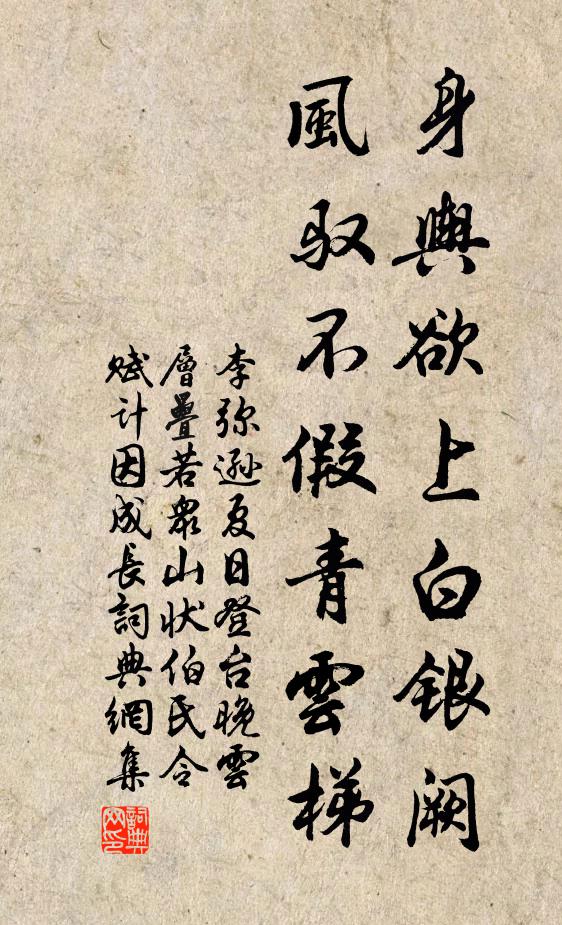 身輿欲上白銀闕
風驭不假青雲梯
李弥遜夏日登台晚雲
層疊若衆山状伯氏令
賦计因成長詞典網集
詞典网印